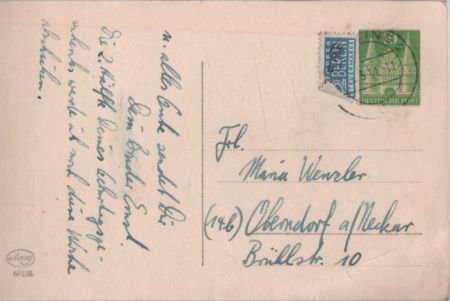 u. alles Gute sendet Dir
Dein Bruder Ernst.
Die 2. Hälfte Deines Geburtstagsge-
schenks werde ich noch diese Woche
abschicken.
NOTOPFER
2 BERLIN
STEUERMARKE
DEUTSCHE POST
Frl.
Maria Wenzler
(14b) Oberndorf a/Neckar
Brühlstr. 10